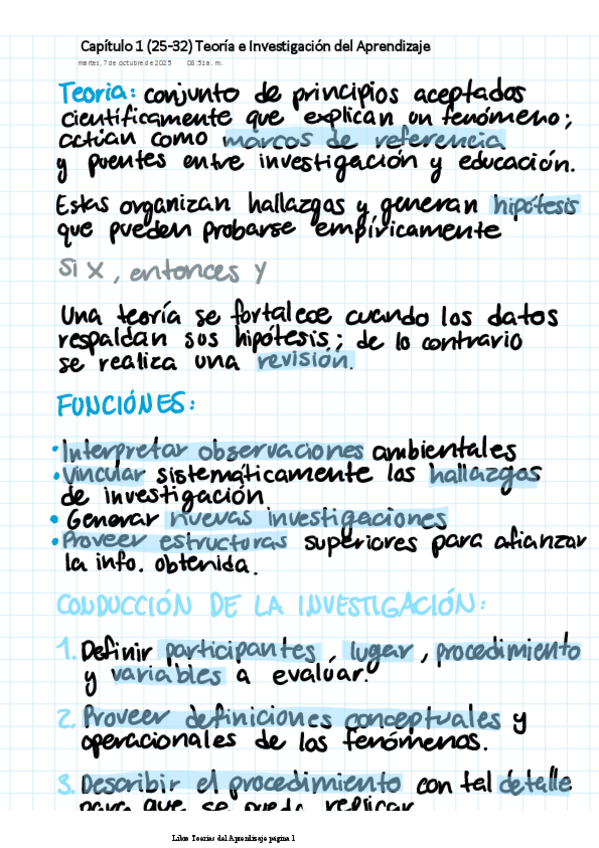 Capítulo 1 (25-32) Teoría e Investigación del Aprendizaje
martes, 7 de octubre de 2025 08:51 a. m.
Teoría: conjunto de principios aceptados
científicamente que explican un fenómeno;
actúan como marcos de referencia
y puentes entre investigación y educación.
Estas organizan hallazgos y generan hipótesis
que pueden probarse empíricamente
Si X, entonces Y
Una teoría se fortalece cuando los datos
respaldan sus hipótesis; de lo contrario
se realiza una revisión.
FUNCIÓNES:
• Interpretar observaciones ambientales
• Vincular sistemáticamente los hallazgos
de investigación
• Generar nuevas investigaciones
• Proveer estructuras superiores para afianzar
la info. obtenida.
CONDUCCIÓN DE LA INVESTIGACIÓN:
1. Definir participantes, lugar, procedimiento
y variables a evaluar.
2. Proveer definiciones conceptuales y
operacionales de los fenómenos.
3. Describir el procedimiento con tal detalle
para que se pueda replicar
Libro Teorías del Aprendizaje página 1